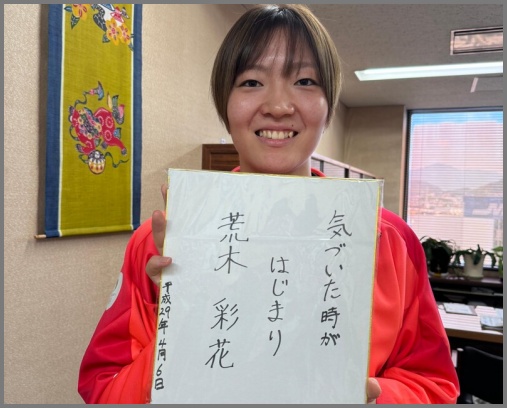 気づいた時が
はじまり
荒木 彩花
平成29年4月6日